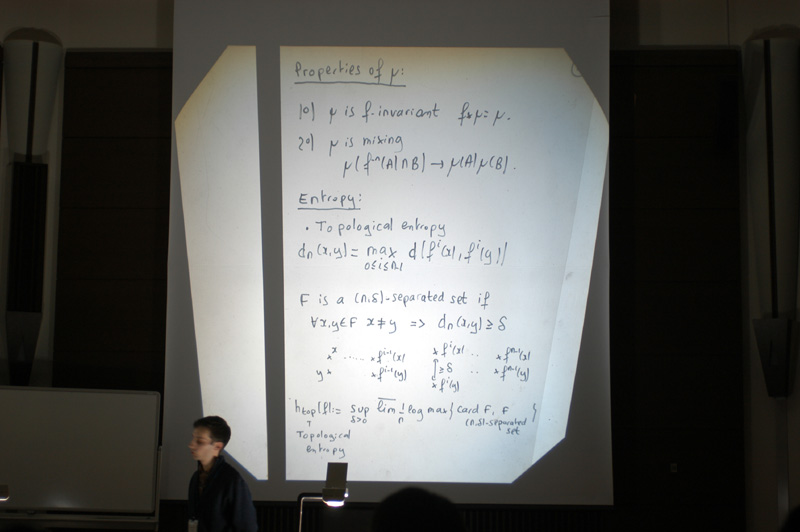 Properties of μ:
1°) μ is f-invariant f*μ = μ.
2°) μ is mixing
μ(f⁻ⁿ(A)∩B) → μ(A)μ(B).
Entropy:
• Topological entropy
dₙ(x,y) = max d(fⁱ(x), fⁱ(y))
0≤i≤n-1
F is a (n,δ)-separated set if
∀x,y∈F x≠y => dₙ(x,y) ≥ δ
x ...... × fⁱ⁻¹(x) × fⁱ(x) .. × fⁿ⁻¹(x)
y × × fⁱ⁻¹(y) ≥δ .. × fⁿ⁻¹(y)
× fⁱ(y)
h_top(f) := sup lim 1/n log max { card F, F }
δ>0 (n,δ)-separated set
↑
Topological
Entropy